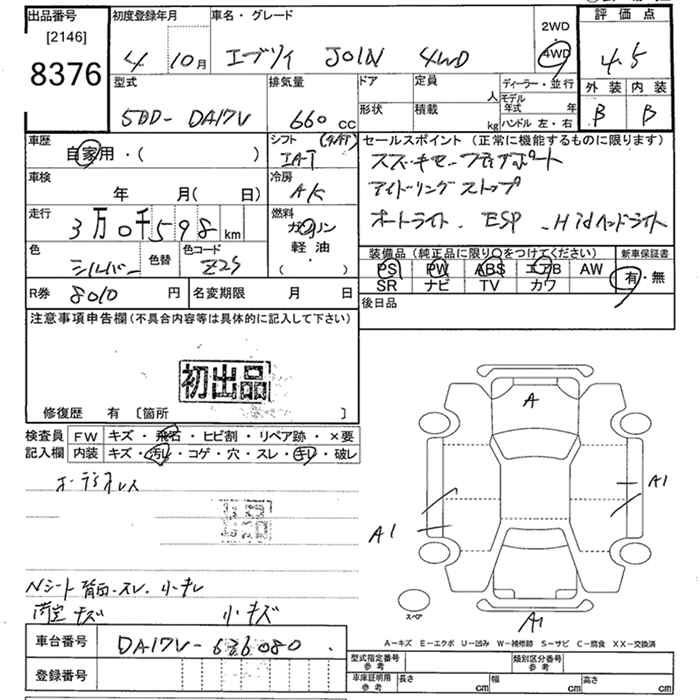 出品番号 初度登録年月 車名・グレード 2WD 評価点
[2146]
8376 4 10月 エブリイ JOIN 4WD 4WD 4.5
型式 排気量 ドア 定員 人 ディーラー・並行 外装 内装
モデル年式 年
5BD-DA17V 660cc 形状 積載 kg ハンドル 左・右 B B
車歴 自家用・( ) シフト IAT セールスポイント (正常に機能するものに限ります)
車検 年 月( 日) 冷房 A/C アイドリングストップ
走行 3万0千598km 燃料 ガソリン 軽油 ( ・ ) オートライト . ESP . Hidヘッドライト
色 シルバー 色替 色コード Z2S 装備品 (純正品に限り○をつけてください) 新車保証書
PS PW ABS エアB AW 有・無
SR ナビ TV カワ
R券 8010円 名変期限 月 日 後日品
注意事項申告欄(不具合内容等は具体的に記入して下さい)
初出品
修復歴 有 〔箇所 〕
A
検査員 FW キズ・飛石・ヒビ割・リペア跡・×要
記入欄 内装 キズ・汚れ・コゲ・穴・スレ・キレ・破レ
A1
A1
Nシート背面.スレ.小キレ
荷室キズ 小キズ
スペア
A1
車台番号 DA17V-636080 A-キズ E-エクボ U-凹み W-補修跡 S-サビ C-腐食 XX-交換済
登録番号 型式指定番号 参考 類別区分番号 参考
車庫証明用 参考 長さ cm 幅 cm 高さ cm